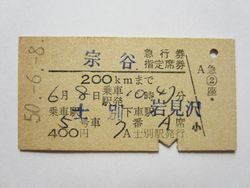 50.-6.-8.
宗谷 急行券
指定席券
A 急 ② 座
200kmまで
6月8日 乗車駅発 10時41分
乗車駅 士別 下車駅 岩見沢
5号車 番A席
400円 士別駅発行
小